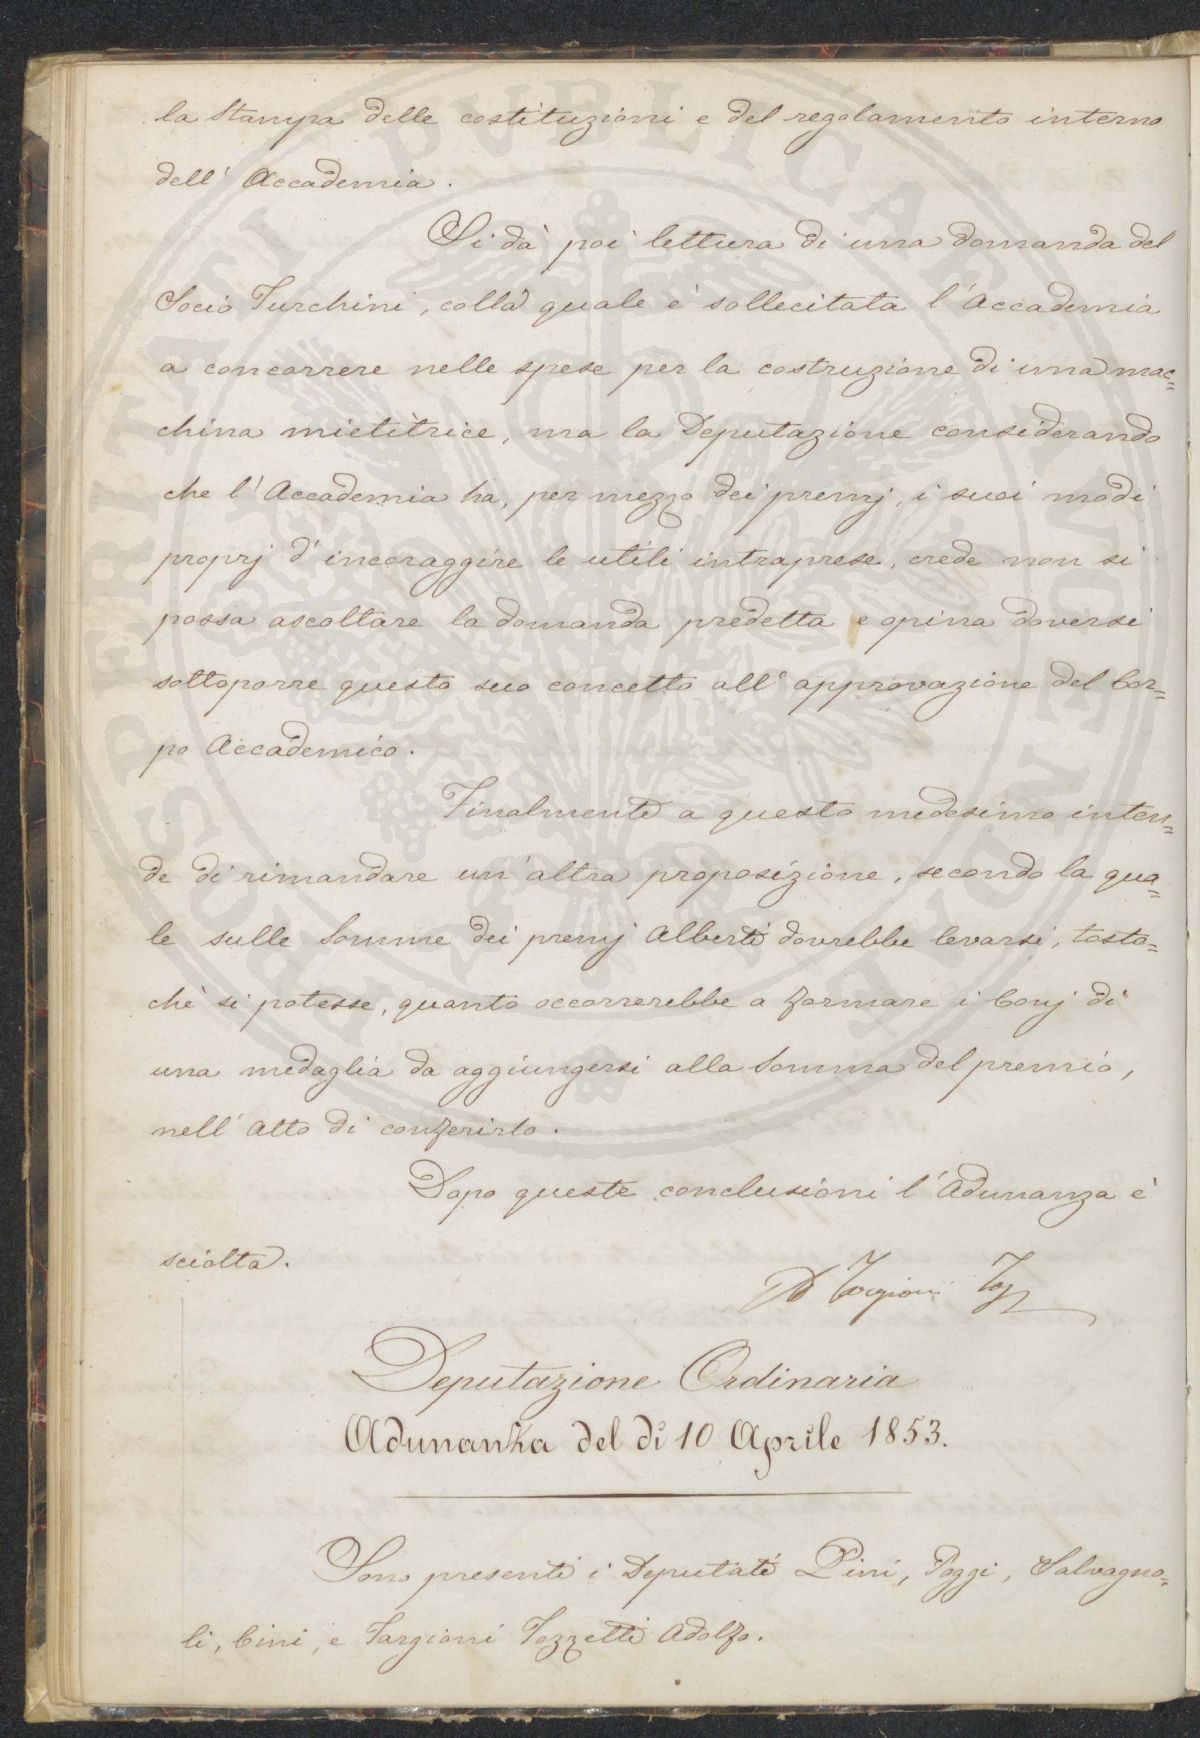 la Stampa delle costituzioni e del regolamento interno
dell' Accademia.
Si dà poi lettura di una domanda del
Socio Turchini, colla quale è sollecitata l'Accademia
a concorrere nelle spese per la costruzione di una mac=
china mietitrice, ma la Deputazione considerando
che l'Accademia ha, per mezzo dei premj, i suoi modi
proprj d'incoraggire le utili intraprese, crede non si
possa ascoltare la domanda predetta e opina doversi
sottoporre questo suo concetto all'approvazione del Cor=
po Accademico.
Finalmente a questo medesimo inten=
de di rimandare un'altra proposizione, secondo la qua=
le sulle Somme dei premj Alberti dovrebbe levarsi, tosto=
chè si potesse, quanto occorrerebbe a formare i Conj di
una medaglia da aggiungersi alla Somma del premio,
nell'Atto di conferirlo.
Dopo queste conclusioni l'Adunanza è
sciolta.
Targioni Toz
Deputazione Ordinaria
Adunanza del dì 10 Aprile 1853.
Sono presenti i Deputati Pini, Poggi, Salvagno=
li, Cini, e Targioni Tozzetti Adolfo.
PROSPERITATI PUBLICAE